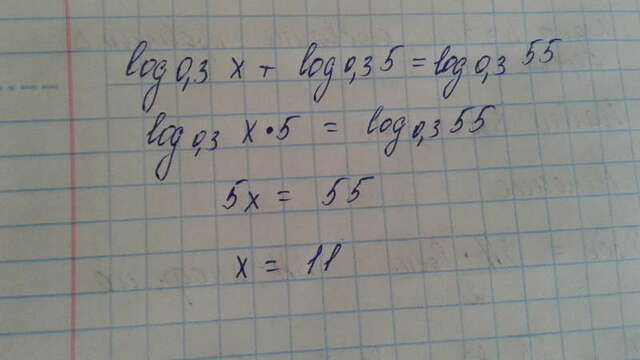 log0,3 x + log0,3 5 = log0,3 55
log0,3 x • 5 = log0,3 55
5x = 55
x = 11